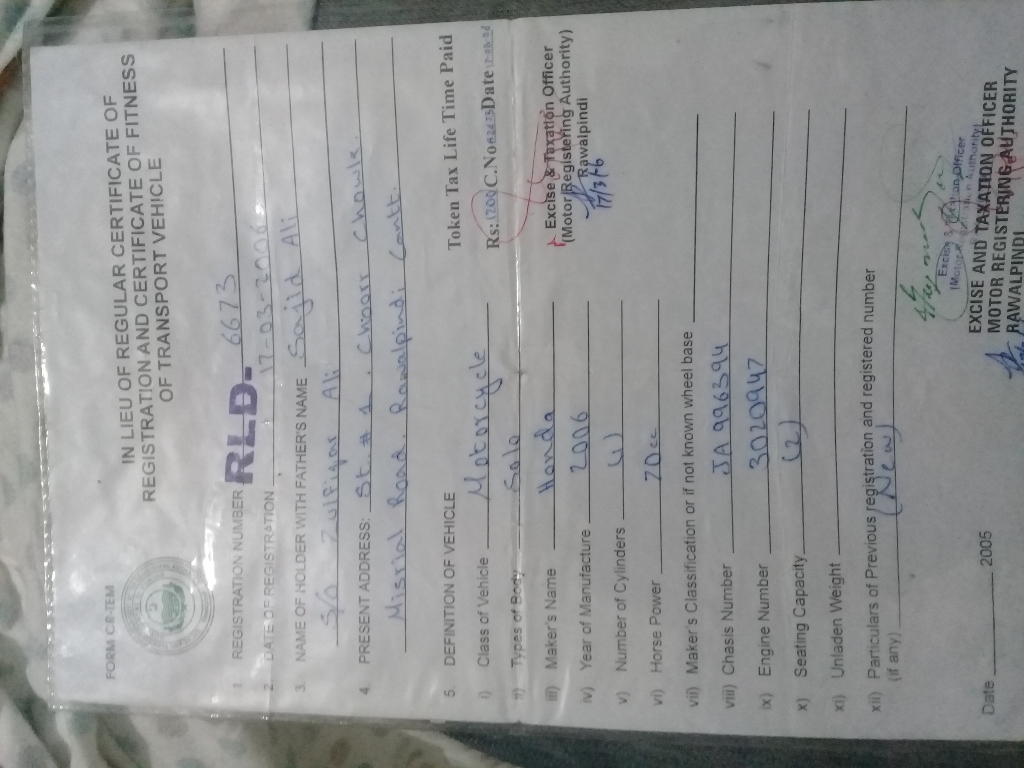 FORM CR-TEM
IN LIEU OF REGULAR CERTIFICATE OF
REGISTRATION AND CERTIFICATE OF FITNESS
OF TRANSPORT VEHICLE
1. REGISTRATION NUMBER RLD- 6673
2. DATE OF REGISTRATION 17-03-2006
3. NAME OF HOLDER WITH FATHER'S NAME Sajid Ali
S/o Zulfiqar Ali
4. PRESENT ADDRESS: St # 1, Chowk
Misrial Road, Rawalpindi Cantt.
5. DEFINITION OF VEHICLE
Token Tax Life Time Paid
i) Class of Vehicle Motorcycle
Rs: 1200 C.No Date
ii) Types of Body Solo
iii) Maker's Name Honda
Excise & Taxation Officer
(Motor Registering Authority)
Rawalpindi
17/3/06
iv) Year of Manufacture 2006
v) Number of Cylinders
vi) Horse Power 70cc
vii) Maker's Classification or if not known wheel base
viii) Chasis Number JA996394
ix) Engine Number 3020947
x) Seating Capacity (2)
xi) Unladen Weight
xii) Particulars of Previous registration and registered number
(if any) (New)
Date 2005
EXCISE AND TAXATION OFFICER
MOTOR REGISTERING AUTHORITY
RAWALPINDI